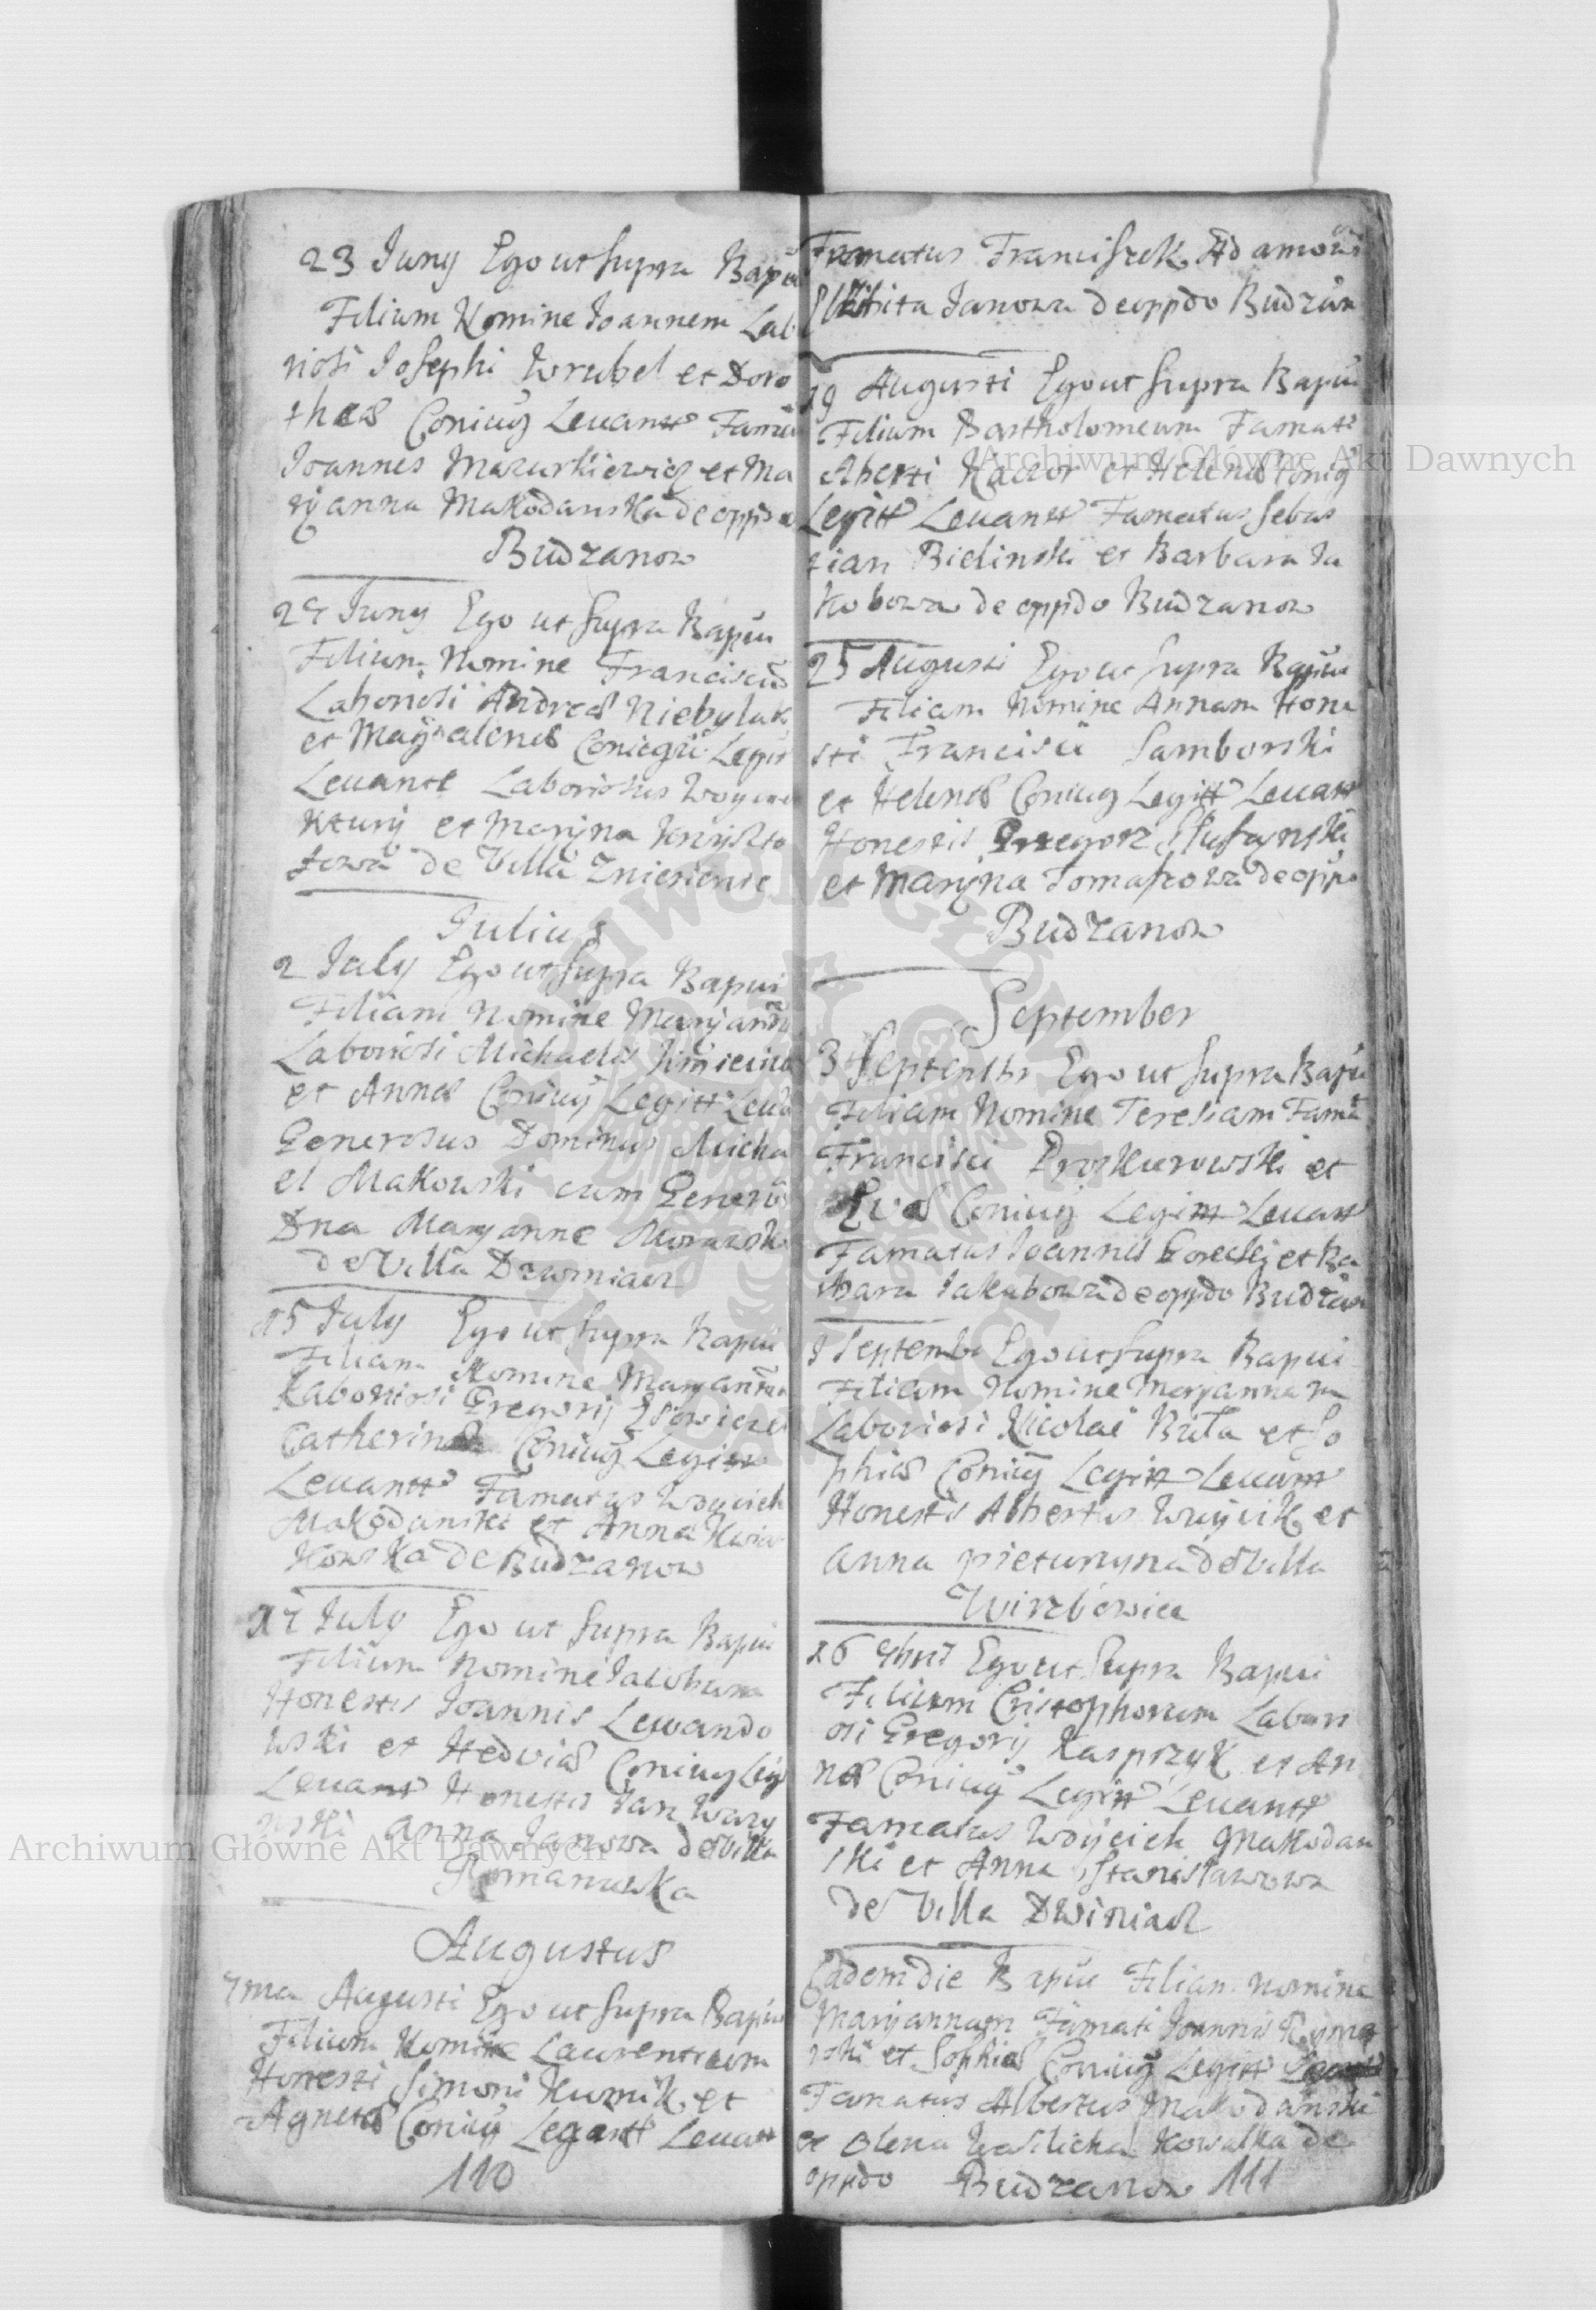 23 Juny Ego ut supra Bapui
Filium Nomine Joannem Lab
riosi Josephi Wrubel et Doro
theæ Coniug Leuantt Famu
Joannes Mazurkiewicz et Ma
ryanna Makodanska de oppido
Budzanow
24 Juny Ego ut supra Bapui
Filium Nomine Franciscu
Laboriosi Andreæ Niebylak
et Magdalenæ Coniugu Legit
Leuante Laboriosus
et Maryna
de Villa Zniesienie
Julius
2 July Ego ut supra Bapui
Filiam Nomine Maryannã
Laboriosi Michaelis
et Annæ Coniug Legitt Leua
Generosus Dominus Micha
el Makowski cum Generos
Dna Maryanne
de Villa
15 July Ego ut supra Bapui
Filiam Nomine Maryannam
Laboriosi Gregorij
Catherinæ Coniug Legitt
Leuantt Famatus Woyciech
Makodanski et Anna
de Budzanow
17 July Ego ut supra Bapui
Filium Nomine Jacobum
Honestis Joannis Lewando
wski et Hedviæ Coniug Legi
Leuantt Honestis Jan Wazy
nski Anna Janowa de Villa
Romanuwka
Augustus
7ma Augusti Ego ut supra Bapui
Filium Nomine Laurentium
Honesti Simoni Kurnik et
Agnetæ Coniug Legantt Leuatt
110
Famatus Franciszek Adamow
Janowa de oppdo Budzan
19 Augusti Ego ut supra Bapui
Filium Bartholomeum Famati
Aberti Kaczor et Helenæ Coniug
Legitt Leuantt Famatus Sebas
tian Bielinski et Barbara Ja
kobowa de oppdo Budzanow
25 Augusti Ego ut supra Bapui
Filiam Nomine Annam Hone
sti Francisci Samborski
et Helenæ Coniug Legitt Leuatt
Honestis Grzegorz
et Maryna Tomaszowa de oppo
Budzanow
September
3 Septembr Ego ut supra Bapui
Filiam Nomine Teresiam Fama
Francisci Proskurowski et
Evæ Coniug Legitt Leuatt
Famatus Joannes et Ba
rbara Jakubowa de oppdo Budzan
Septemb Ego ut supra Bapui
Filiam Nomine Maryannam
Laboriosi Nicolai Buła et So
phiæ Coniug Legitt Leuantt
Honestis Albertus Wuycik et
Anna pieturyna de Villa
Wirzbowiec
26 9bris Ego ut supra Bapui
Filium Cristophorum Labori
osi Gregorij Kasprzyk et An
næ Coniug Legitt Leuantt
Famatus Woyciech Makodan
ski et Anna Stanisławowa
de Villa Dwiniacz
Eadem die Bapui Filiam Nomine
Maryannam Famati Joannis Ryma
rski et Sophiæ Coniug Legitt
Famatus Albertus Makodanski
et Olena Kowalka de
oppdo Budzanow 111
Archiwum Główne Akt Dawnych
Archiwum Główne Akt Dawnych
ARCHIWUM GŁÓWNE AKT DAWNYCH